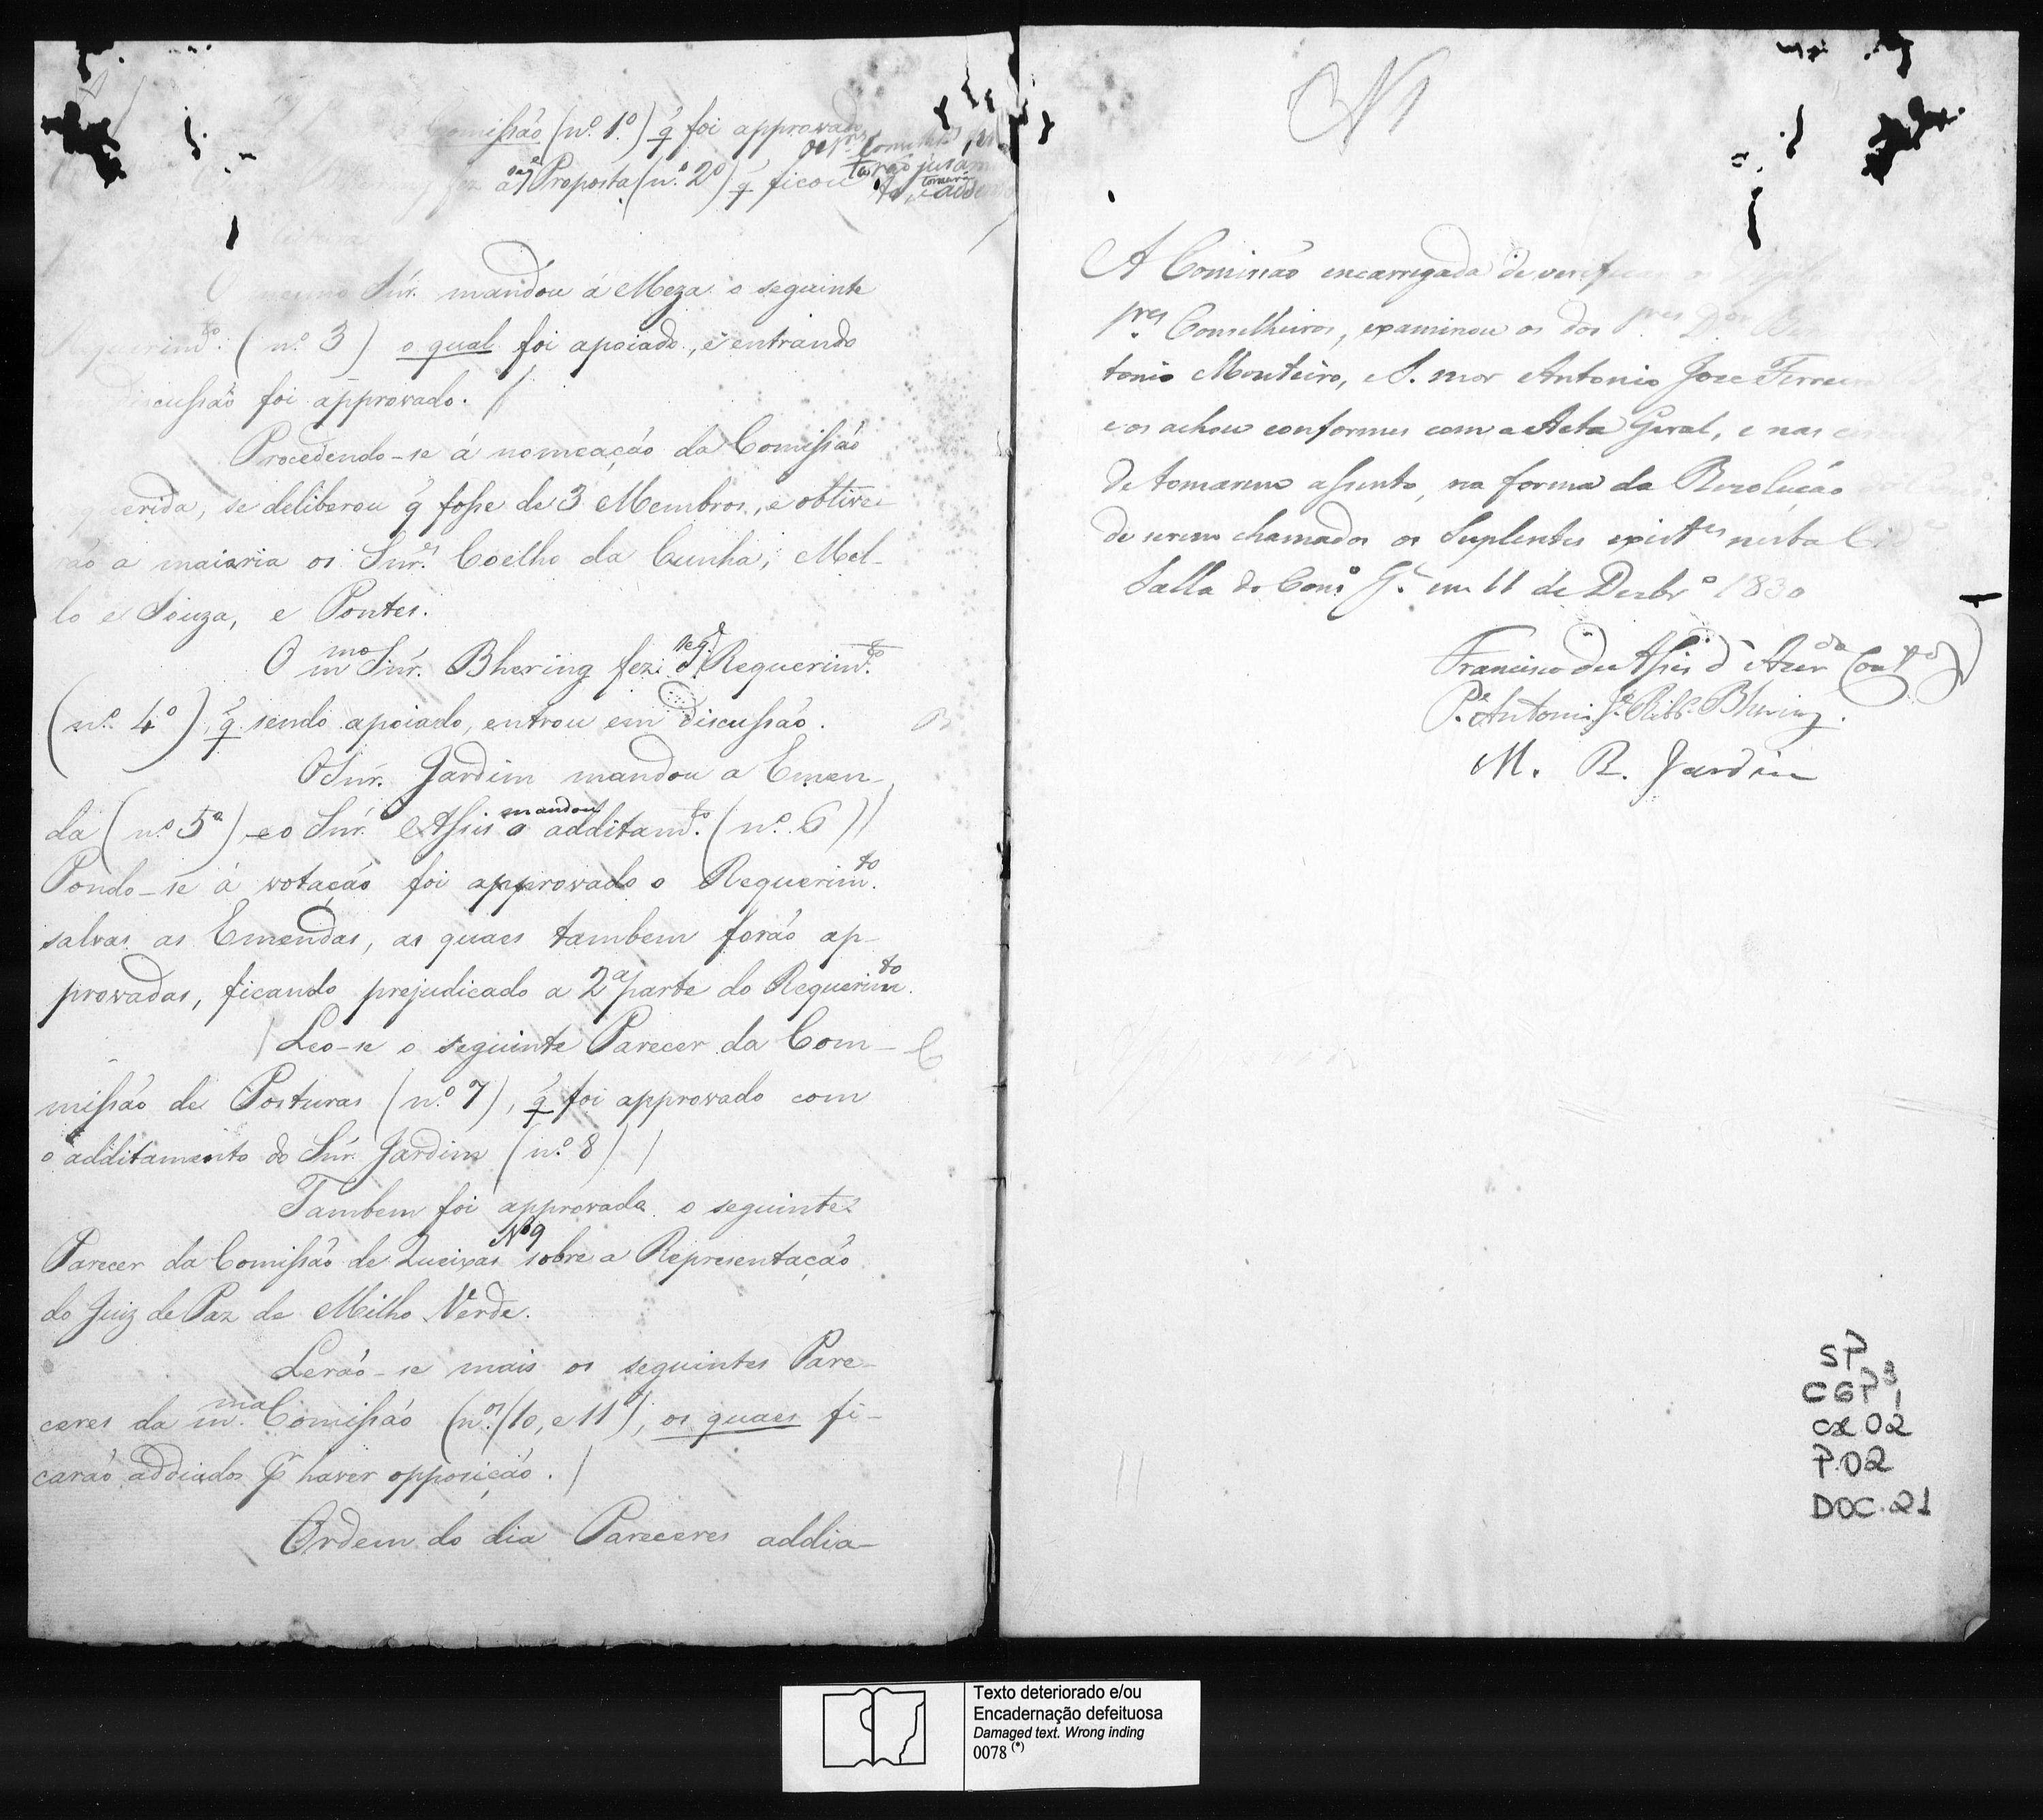 Comissão (nº 1º) q̃ foi approvado
a Proposta (nº 2º) q̃ ficou
tarão juram
to, e tomarão
O mesmo Snr. mandou á Meza o seguinte
Requerimto. (nº 3) o qual foi apoiado, e entrando
discussão foi approvado. /
Procedendo-se á nomeação da Comissão
querida, se deliberou q̃ fosse de 3 Membros, e obtive
rão a maioria os Snres. Coelho da Cunha, Mel-
lo e Souza, e Pontes.
O mmo Snr. Bhering fez o seg. Requerimto.
(nº 4º), q̃ sendo apoiado, entrou em discussão.
O Snr. Jardim mandou a Emen-
da (nº 5ª) e o Snr. Assis mandou o additamto. (nº 6) /
Pondo-se á votação foi approvado o Requerimto.
salvas as Emendas, as quaes tambem forão ap-
provadas, ficando prejudicado a 2ª parte do Requerimto.
/ Leo-se o seguinte Parecer da Com-
missão de Posturas (nº 7), q̃ foi approvado com
o additamento do Snr. Jardim (nº 8) /
Tambem foi approvado o seguinte
Parecer da Comissão de Queixas Nº 9 sobre a Representação
do Juiz de Paz de Milho Verde.
Lerão-se mais os seguintes Pare-
ceres da mma. Comissão (nos. 10, e 11), os quaes fi-
carão addiados pr haver opposição. /
Ordem do dia Pareceres addia-
Nº 1
A Comissão encarregada de verificar
pres Conselheiros, examinou os dos
tonio Monteiro, e S. mor Antonio Joze Ferreira
e os achou conformes com a Acta Geral, e nas
de tomarem assento, na forma da Rezolução
de serem chamados os Suplentes existes nesta Cide
Salla do Conso Gl em 11 de Dezbrº 1830
Francisco de Assis d'Azerdo Couto
Pe. Antonio Je Ribro Bhering.
M. R. Jardim
SP
CGP31
cx 02
P.02
DOC. 21
Texto deteriorado e/ou
Encadernação defeituosa
Damaged text. Wrong inding
0078 (*)